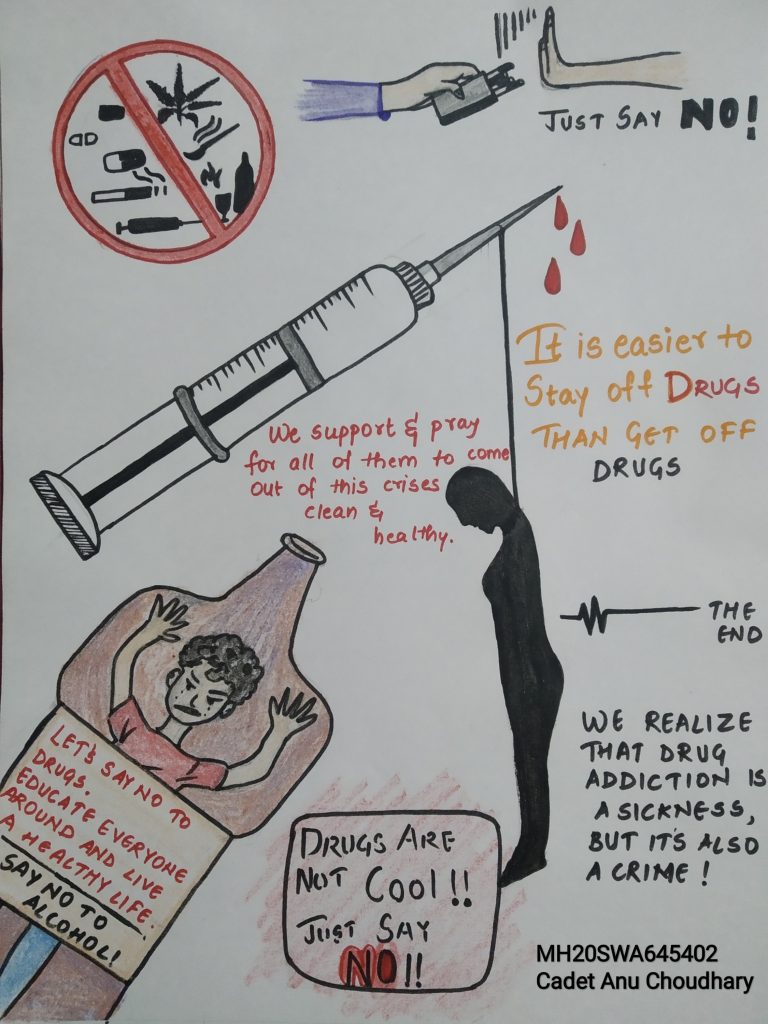 JUST SAY NO!
It is easier to
Stay off DRUGS
THAN GET OFF
DRUGS
We support & pray
for all of them to come
out of this crises
clean &
healthy.
THE
END
LET'S SAY NO TO
DRUGS.
EDUCATE EVERYONE
AROUND AND LIVE
A HEALTHY LIFE.
SAY NO TO
ALCOHOL!
WE REALIZE
THAT DRUG
ADDICTION IS
A SICKNESS,
BUT IT'S ALSO
A CRIME!
DRUGS ARE
NOT Cool!!
JUST SAY
NO!!
MH20SWA645402
Cadet Anu Choudhary